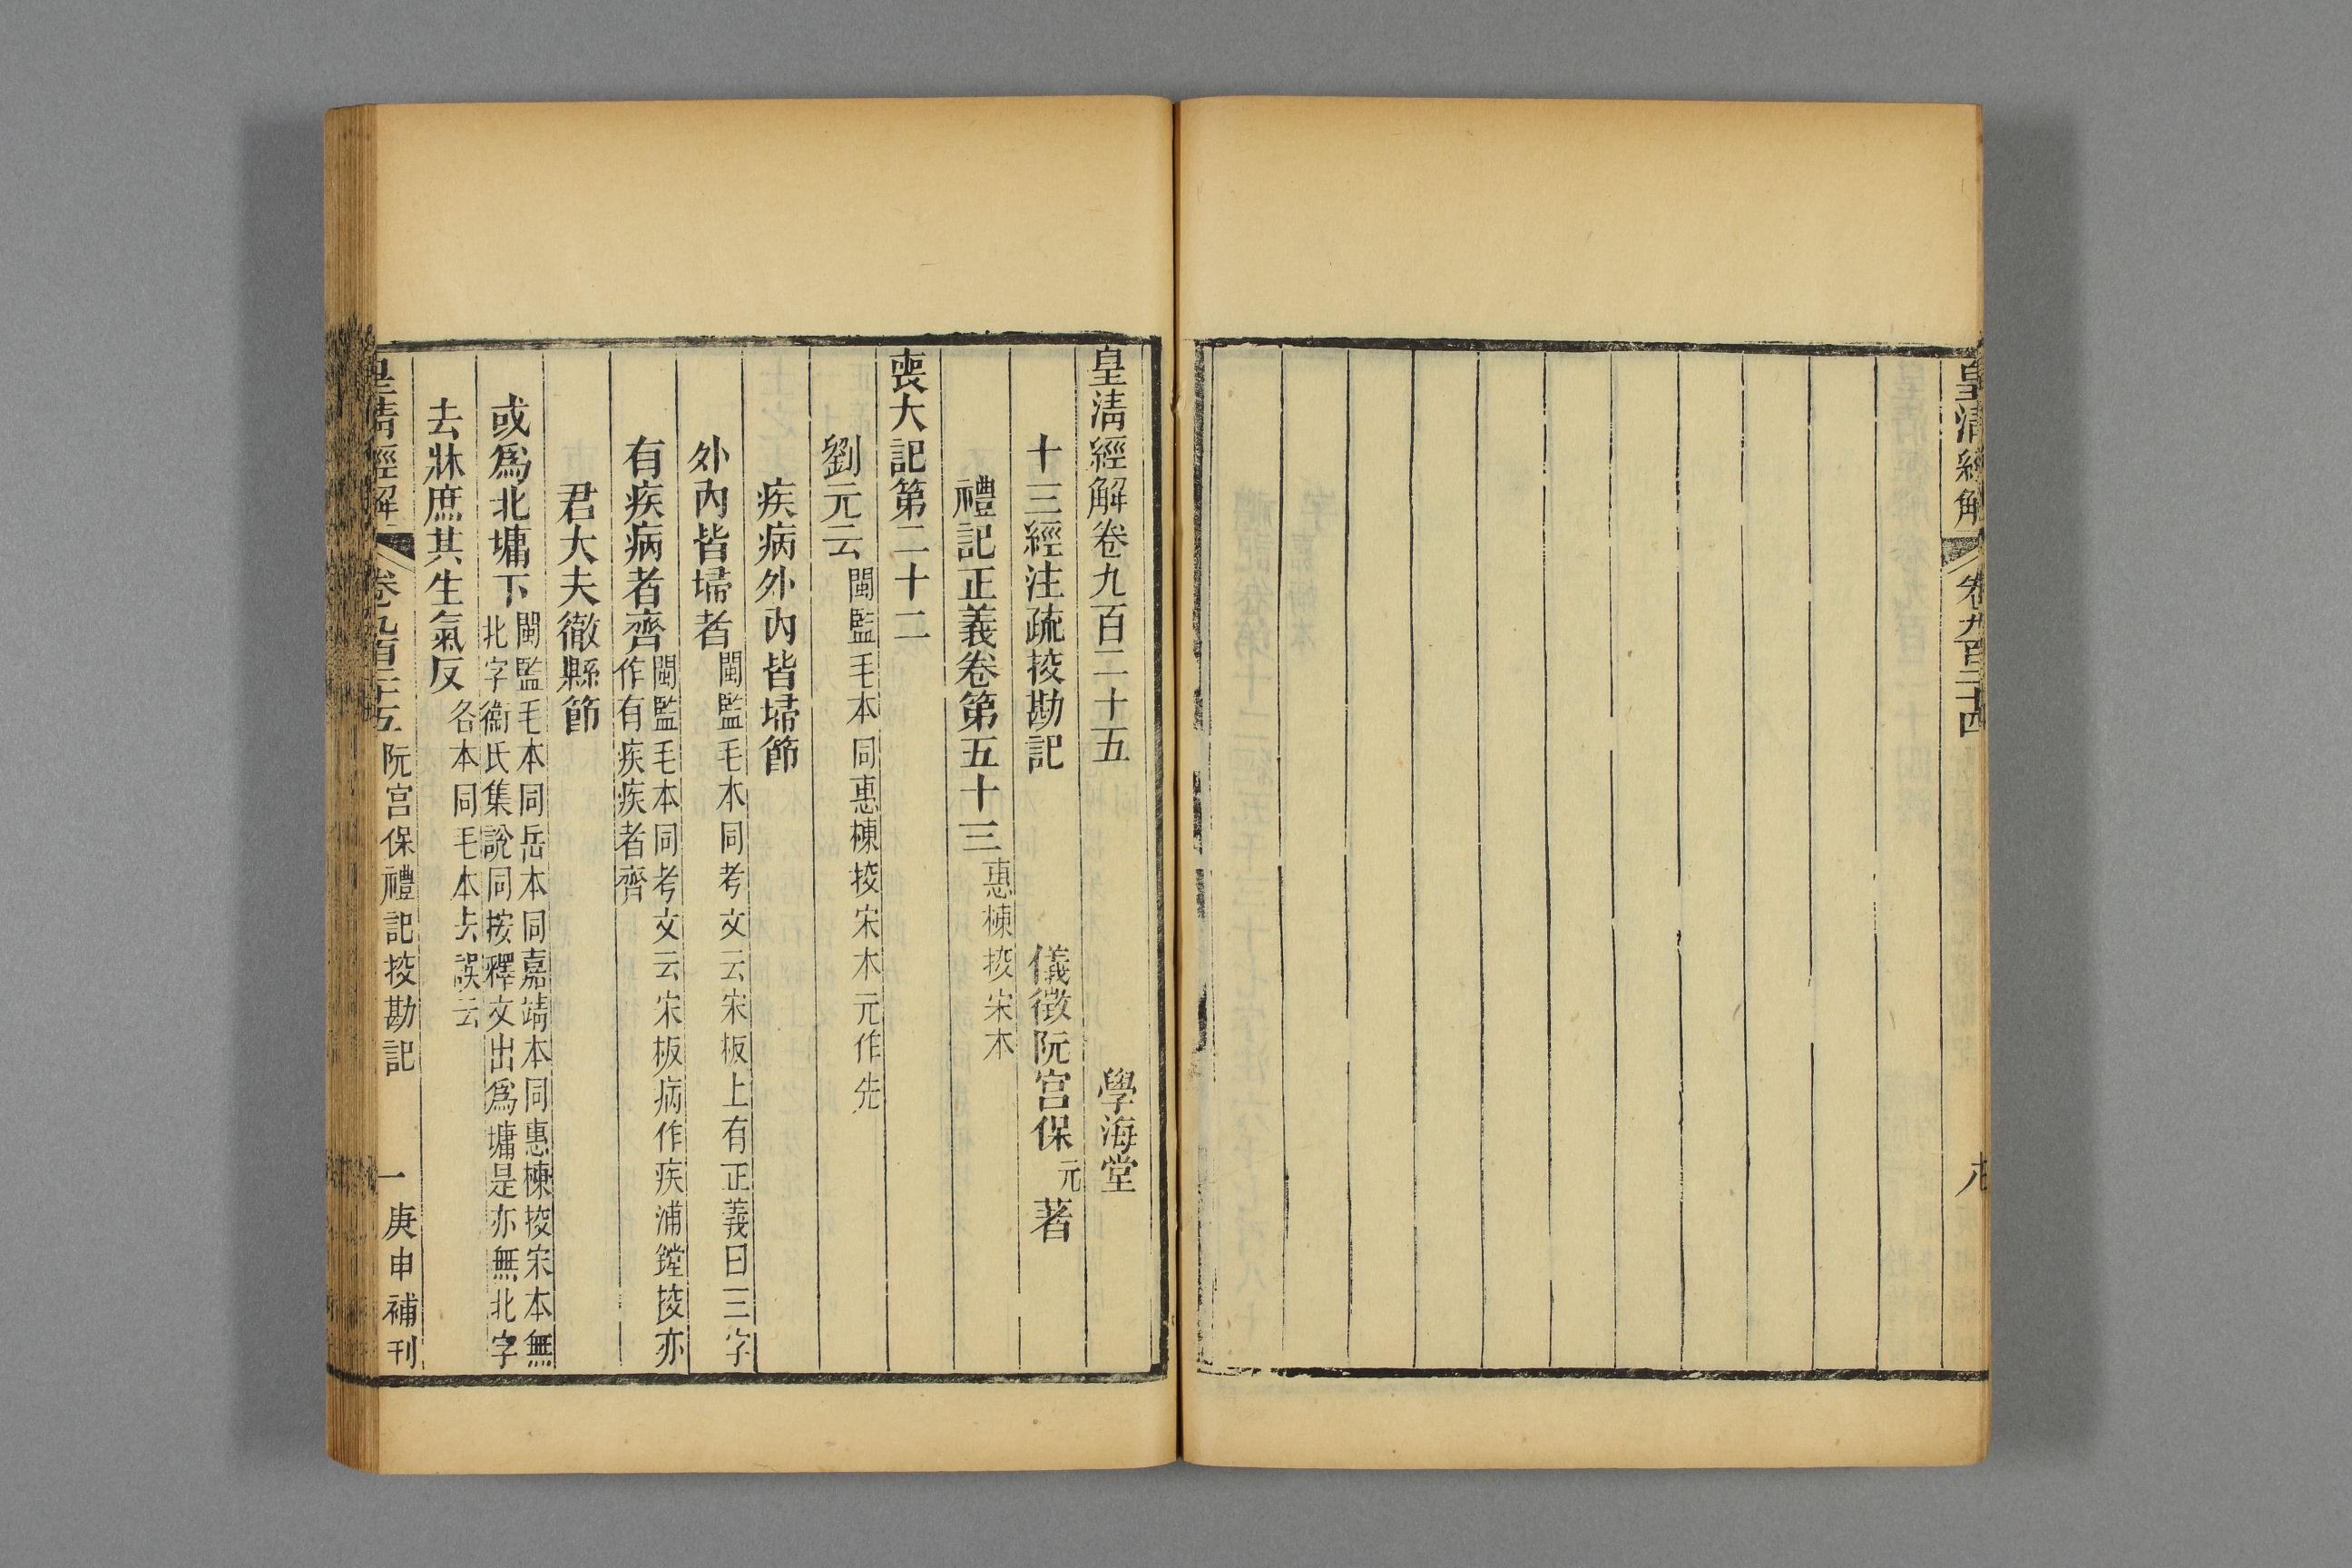 皇清經解 卷九百二十四
皇清經解卷九百二十五 學海堂
十三經注疏挍勘記 儀徵阮宮保元著
禮記正義卷第五十三惠棟挍宋本
喪大記第二十二
劉元云閩監毛本同惠棟挍宋本元作先
疾病外內皆埽節
外內皆埽者閩監毛本同考文云宋板上有正義曰三字
有疾病者齊閩監毛本同考文云宋板病作疾浦鏜挍亦
作有疾疾者齊
君大夫徹縣節
或爲北墉下閩監毛本同岳本同嘉靖本同惠棟挍宋本無
北字衞氏集說同按釋文出爲墉是亦無北字
去牀庶其生氣反各本同毛本去誤云
皇清經解 卷九百二十五 阮宮保禮記挍勘記 一 庚申補刊